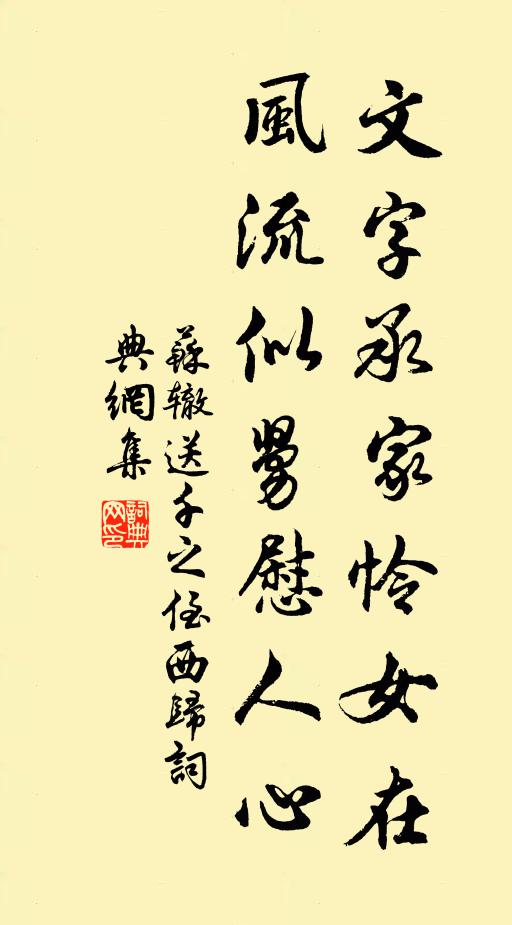 文字承家怜女在
風流似舅慰人心
蘇辙送千之侄西歸詞
典網集
詞典
网印